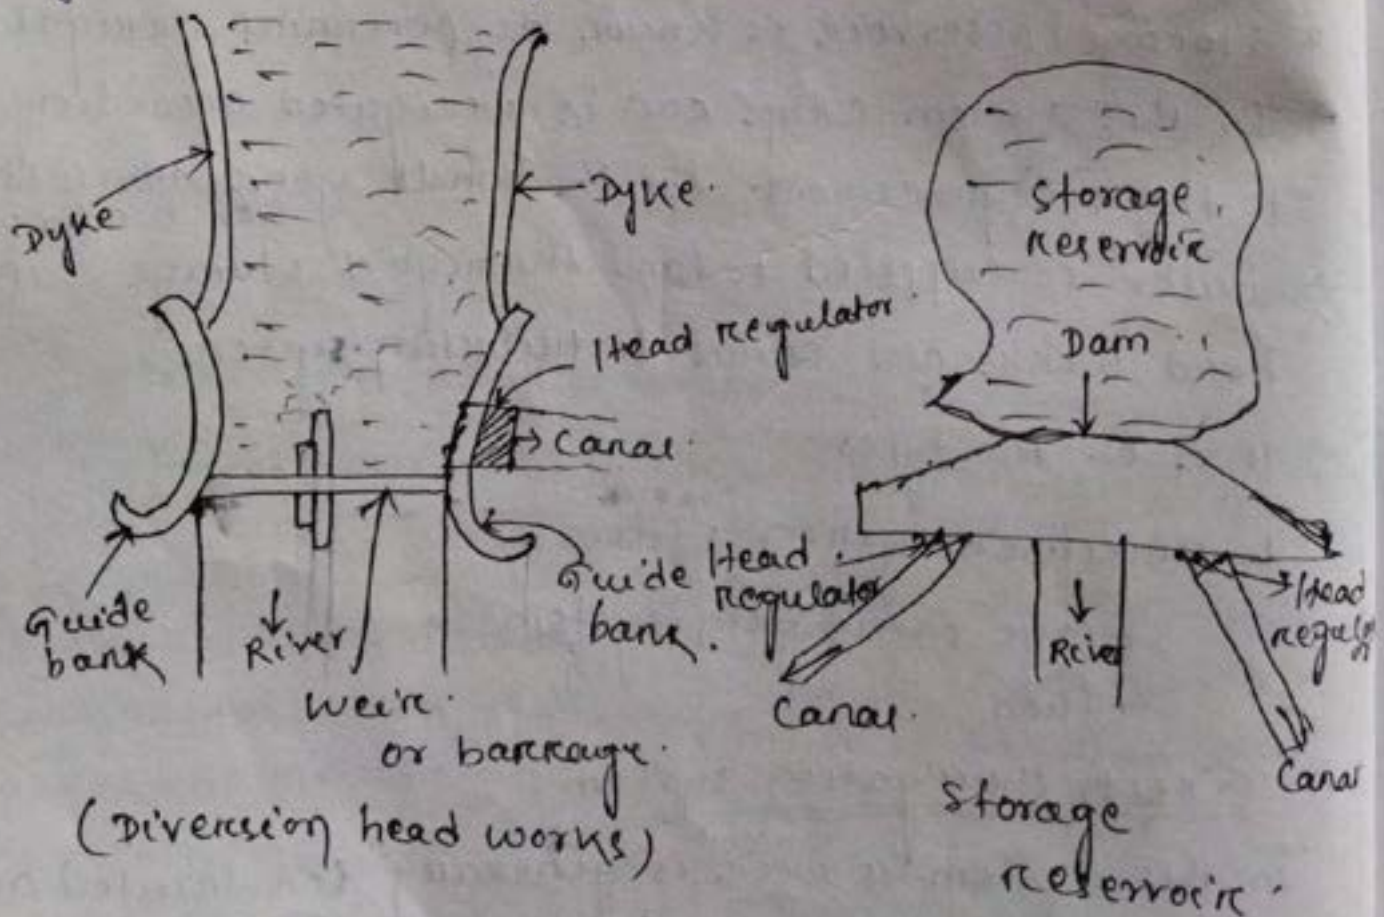 Dyke
Dyke.
Head Regulator.
Canal.
Guide
bank
River
Guide
bank.
Weir.
or barrage.
(Diversion head works)
Storage
reservoir
Dam
Head
regulator
River
Head
regulator
Canal.
Canal
Storage
reservoir.